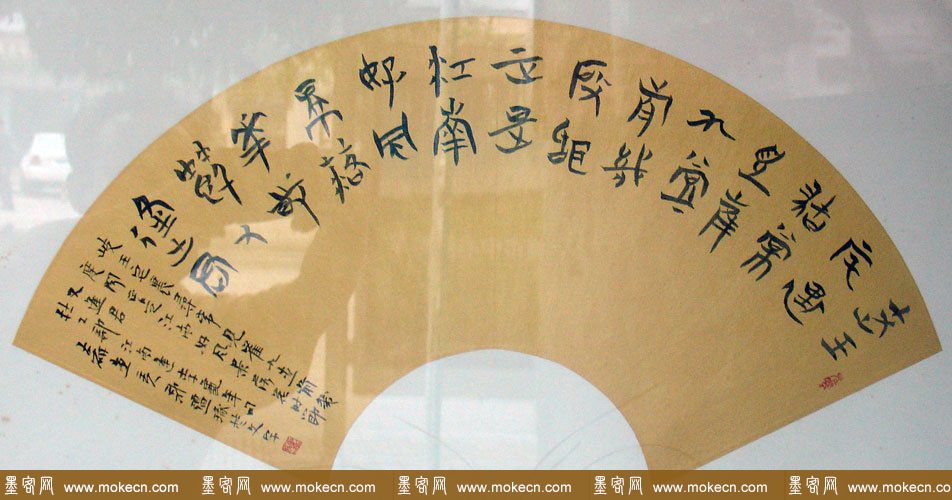 岐王
宅尋
裏常
見崔
九堂
前幾
度聞
正是
江南
好風
景落
花時
節又
逢君
岐王宅裏尋常見崔九堂前幾
度聞正是江南好風景落花時節
又逢君
杜工部江南逢李龜年
墨客网 www.mokecn.com 墨客网 www.mokecn.com 墨客网 www.mokecn.com 墨客网 www.mokecn.com 墨客网 www.mokecn.co